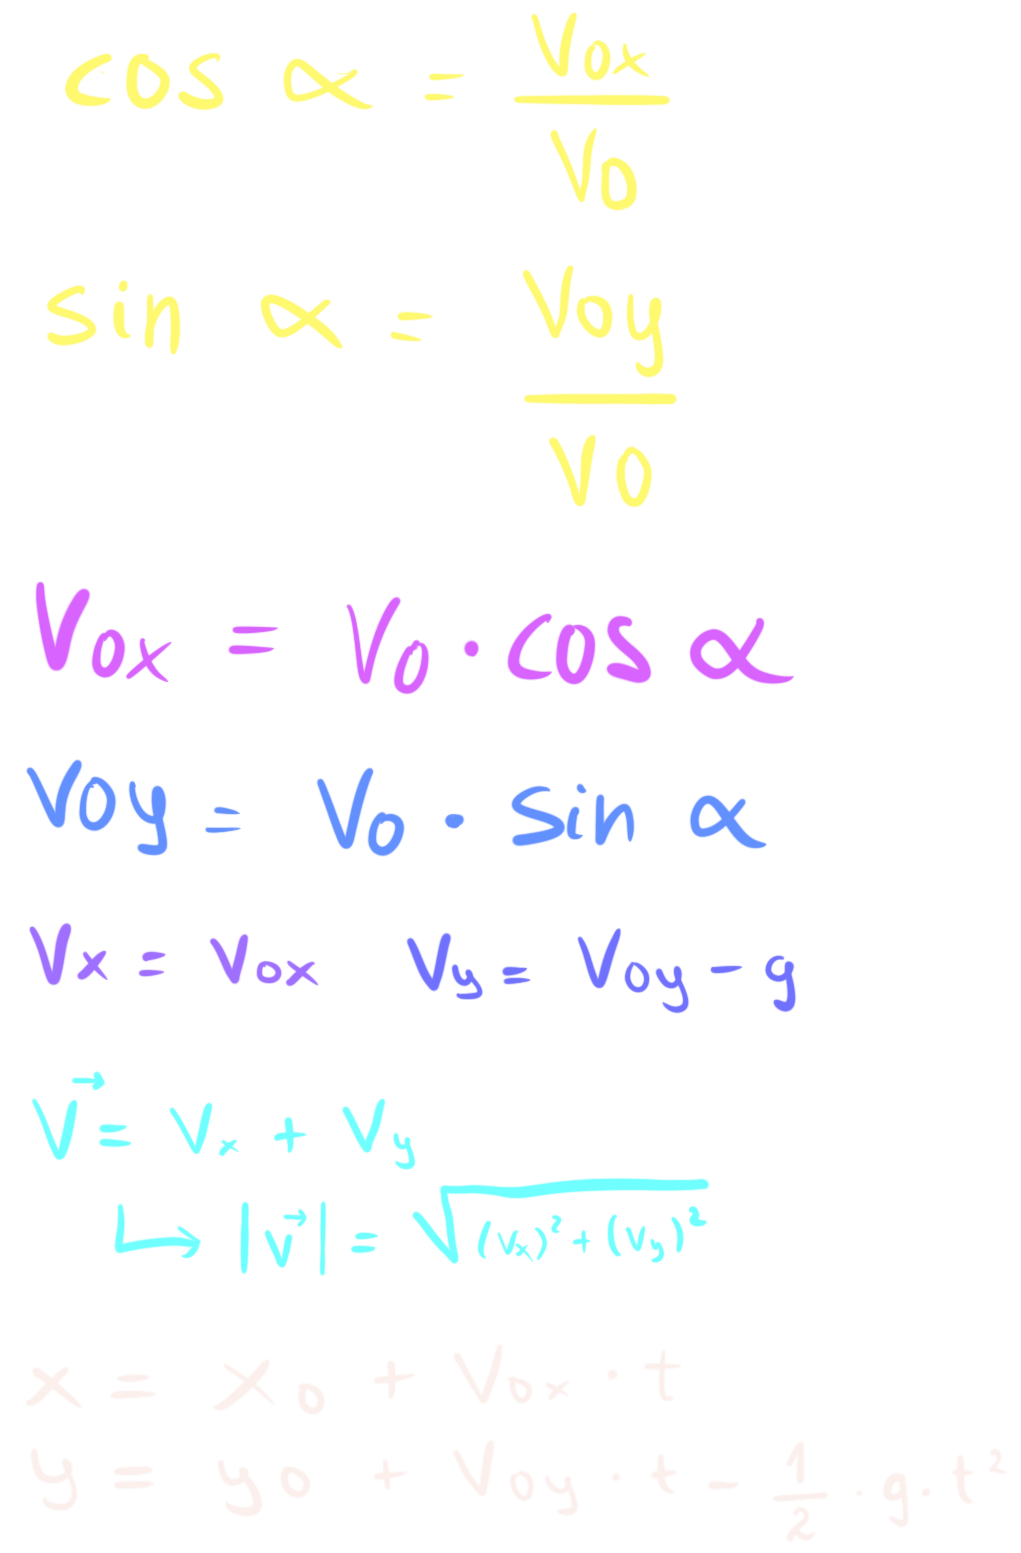 cos α = V0x / V0
sin α = V0y / V0
V0x = V0 · cos α
V0y = V0 · sin α
Vx = V0x Vy = V0y - g
V⃗ = Vx + Vy
↳ |v⃗| = √((Vx)² + (Vy)²)
x = x0 + V0x · t
y = y0 + V0y · t - 1/2 · g · t²